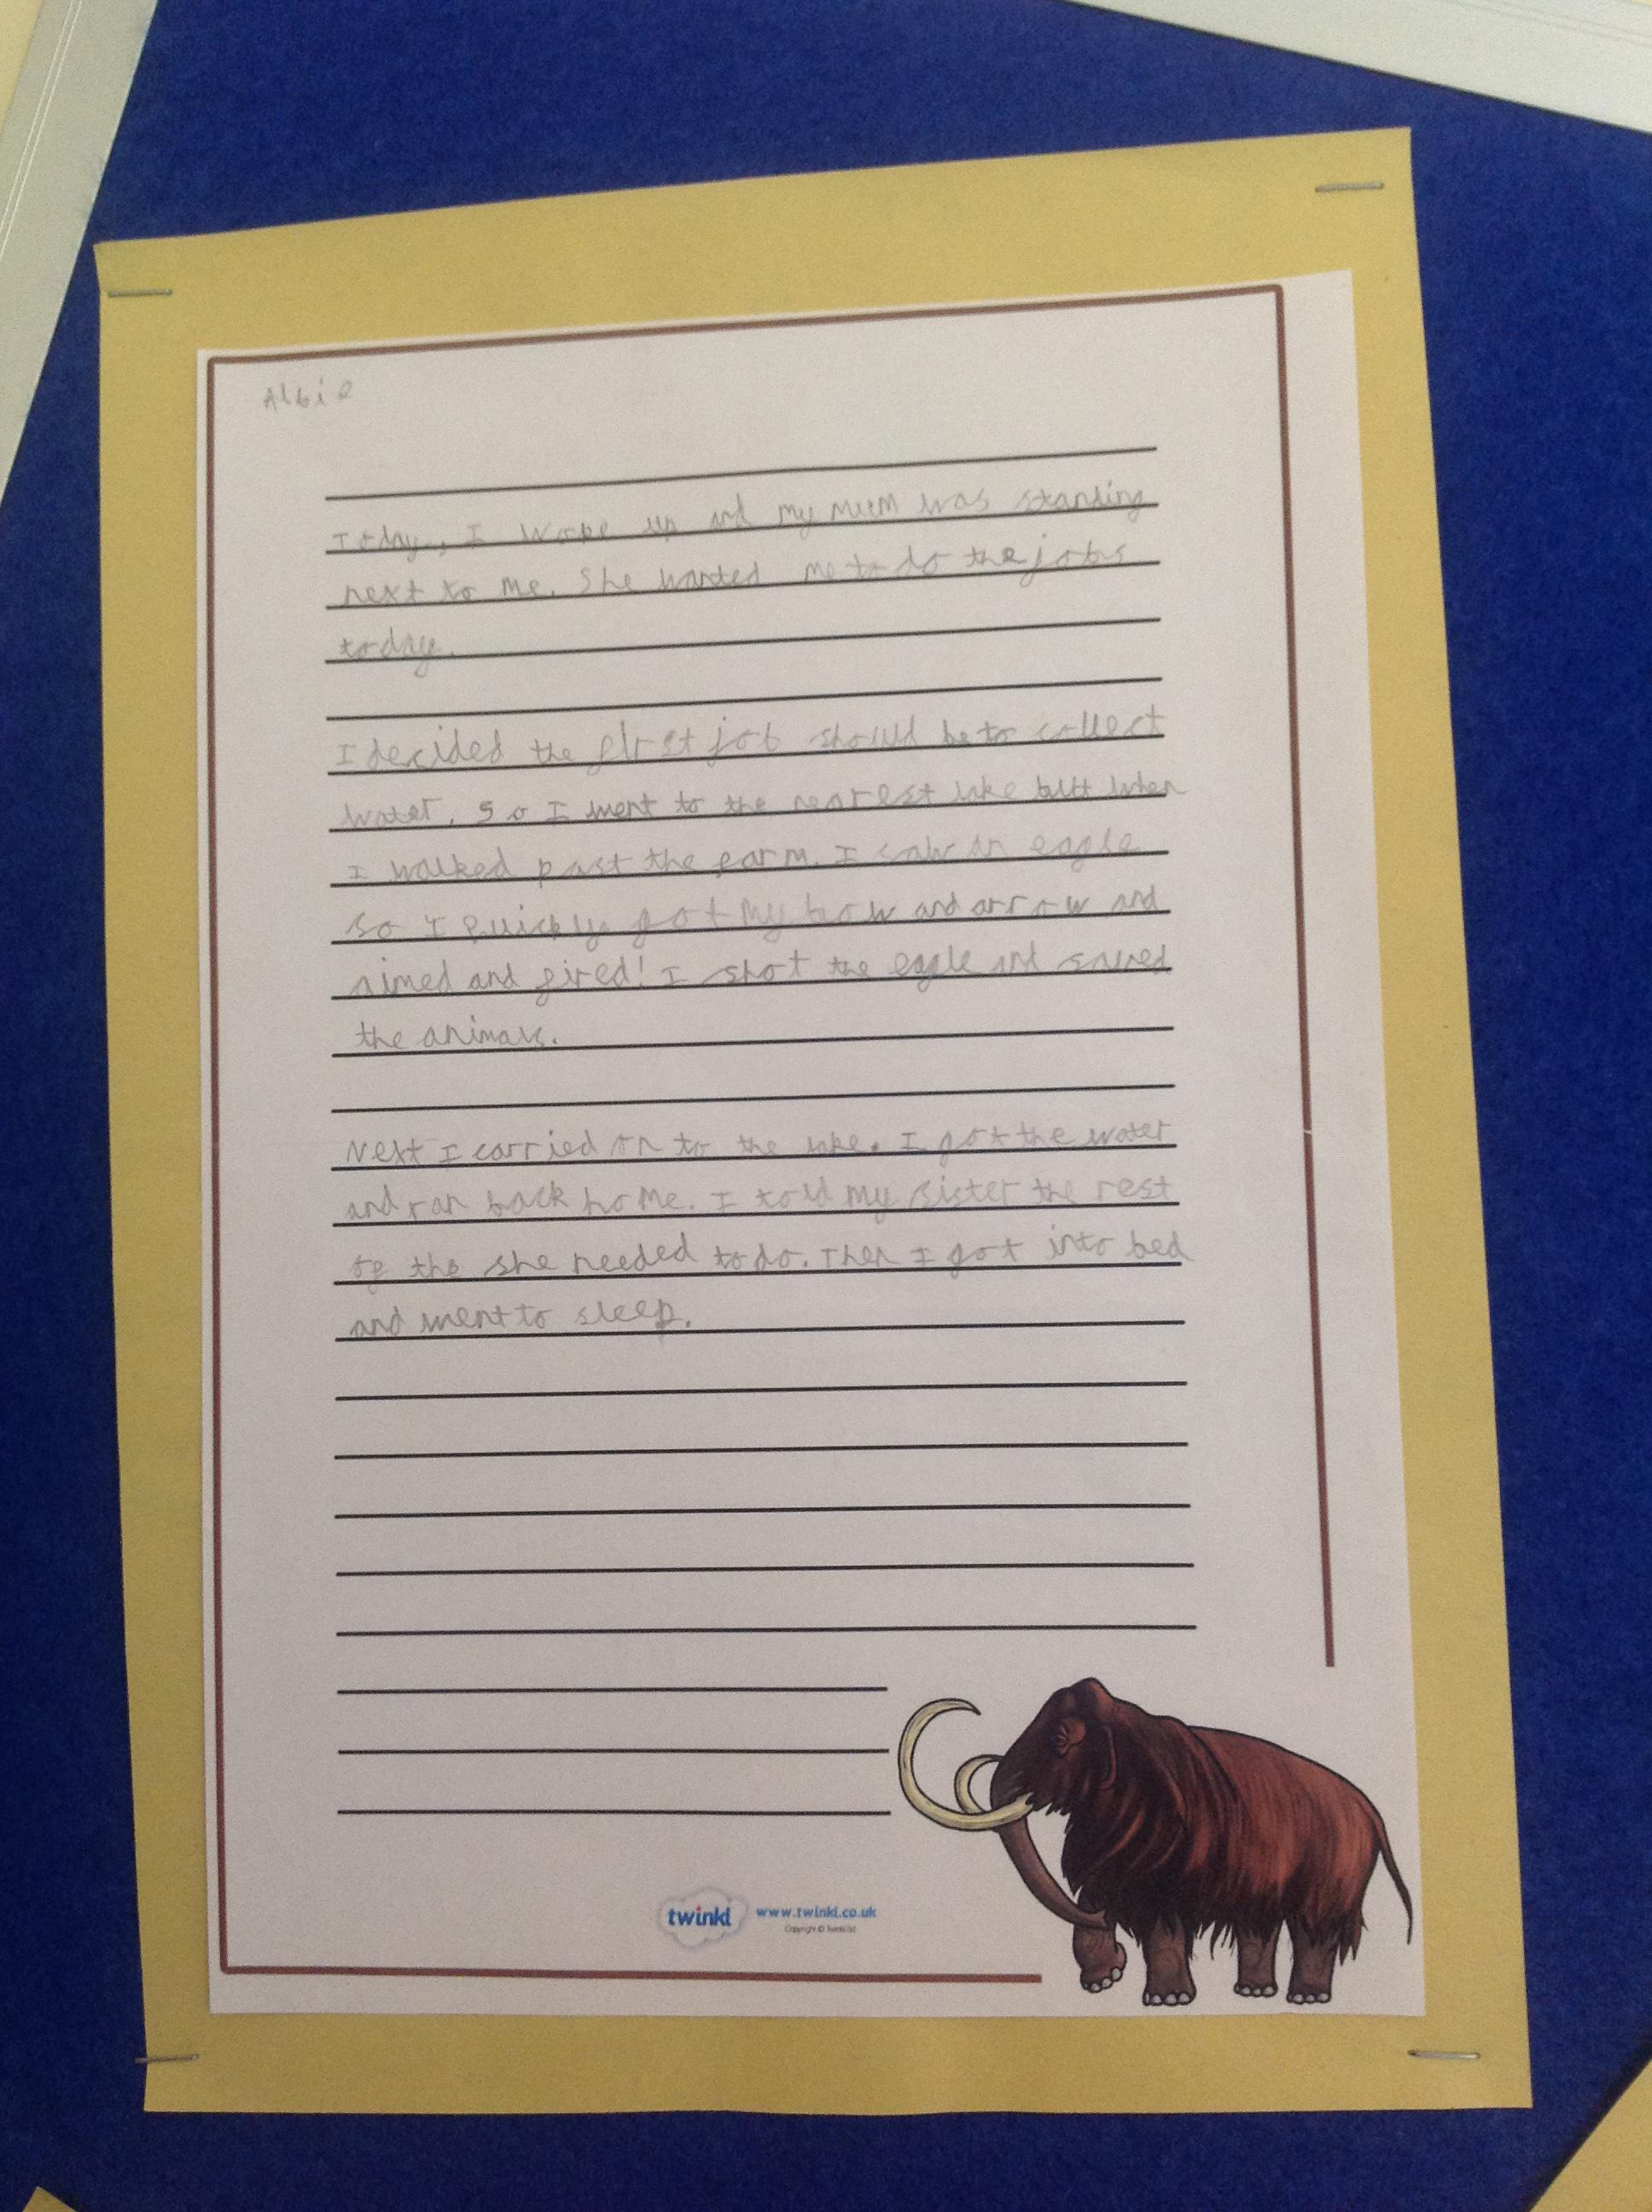 Albie
Today, I woke up and my mum was standing
next to me. She wanted me to do the jobs
today.
I decided the first job should be to collect
water. So I went to the nearest lake butt when
I walked past the farm. I saw an eagle
so I quickly got my bow and arrow and
aimed and fired! I shot the eagle and saved
the animals.
Next I carried on to the lake. I got the water
and ran back home. I told my sister the rest
of the she needed to do. Then I got into bed
and went to sleep.
twinkl www.twinkl.co.uk
Copyright © Twinkl Ltd